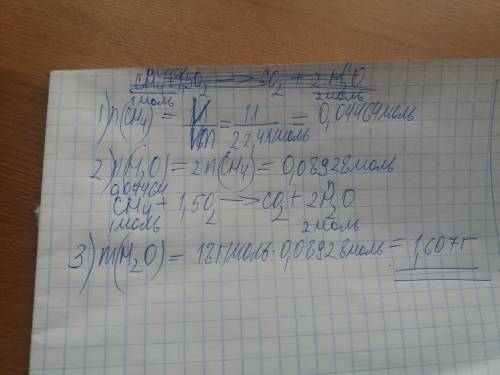 CO₂ + 2H₂O
1моль 2моль
1) n(CH₄) = V/Vm = 1л/22,4л/моль = 0,04464моль
2) n(H₂O) = 2n(CH₄) = 0,08928моль
CH₄ + 1,5O₂ → CO₂ + 2H₂O
1моль 2моль
3) m(H₂O) = 18г/моль · 0,08928моль = 1,607г